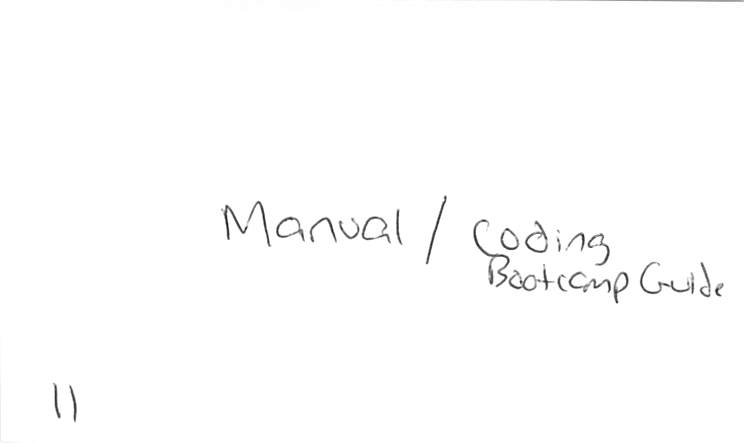 Manual / Coding
Bootcamp Guide
11